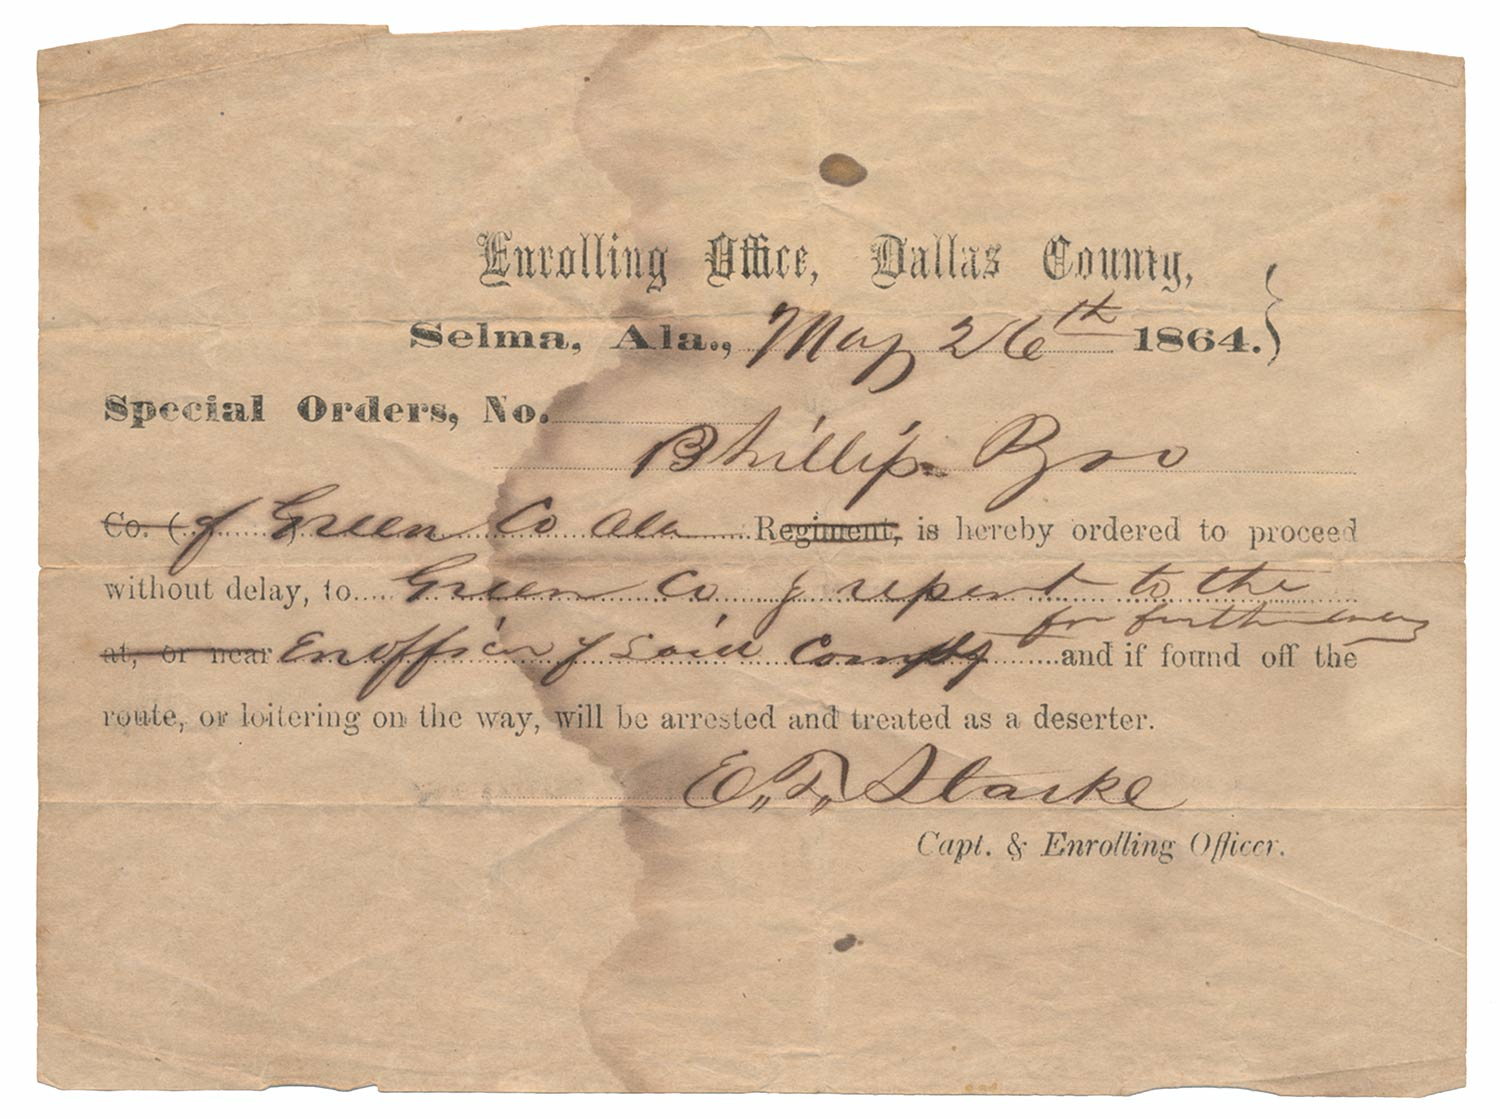 Enrolling Office, Dallas County,
Selma, Ala., May 26th 1864.}
Special Orders, No.
Phillip
Co. ( of Green Co Ala Regiment, is hereby ordered to proceed
without delay, to Green Co & report to the
for further
at, or near En officer of said County and if found off the
route, or loitering on the way, will be arrested and treated as a deserter.
E. T. Starke
Capt. & Enrolling Officer.